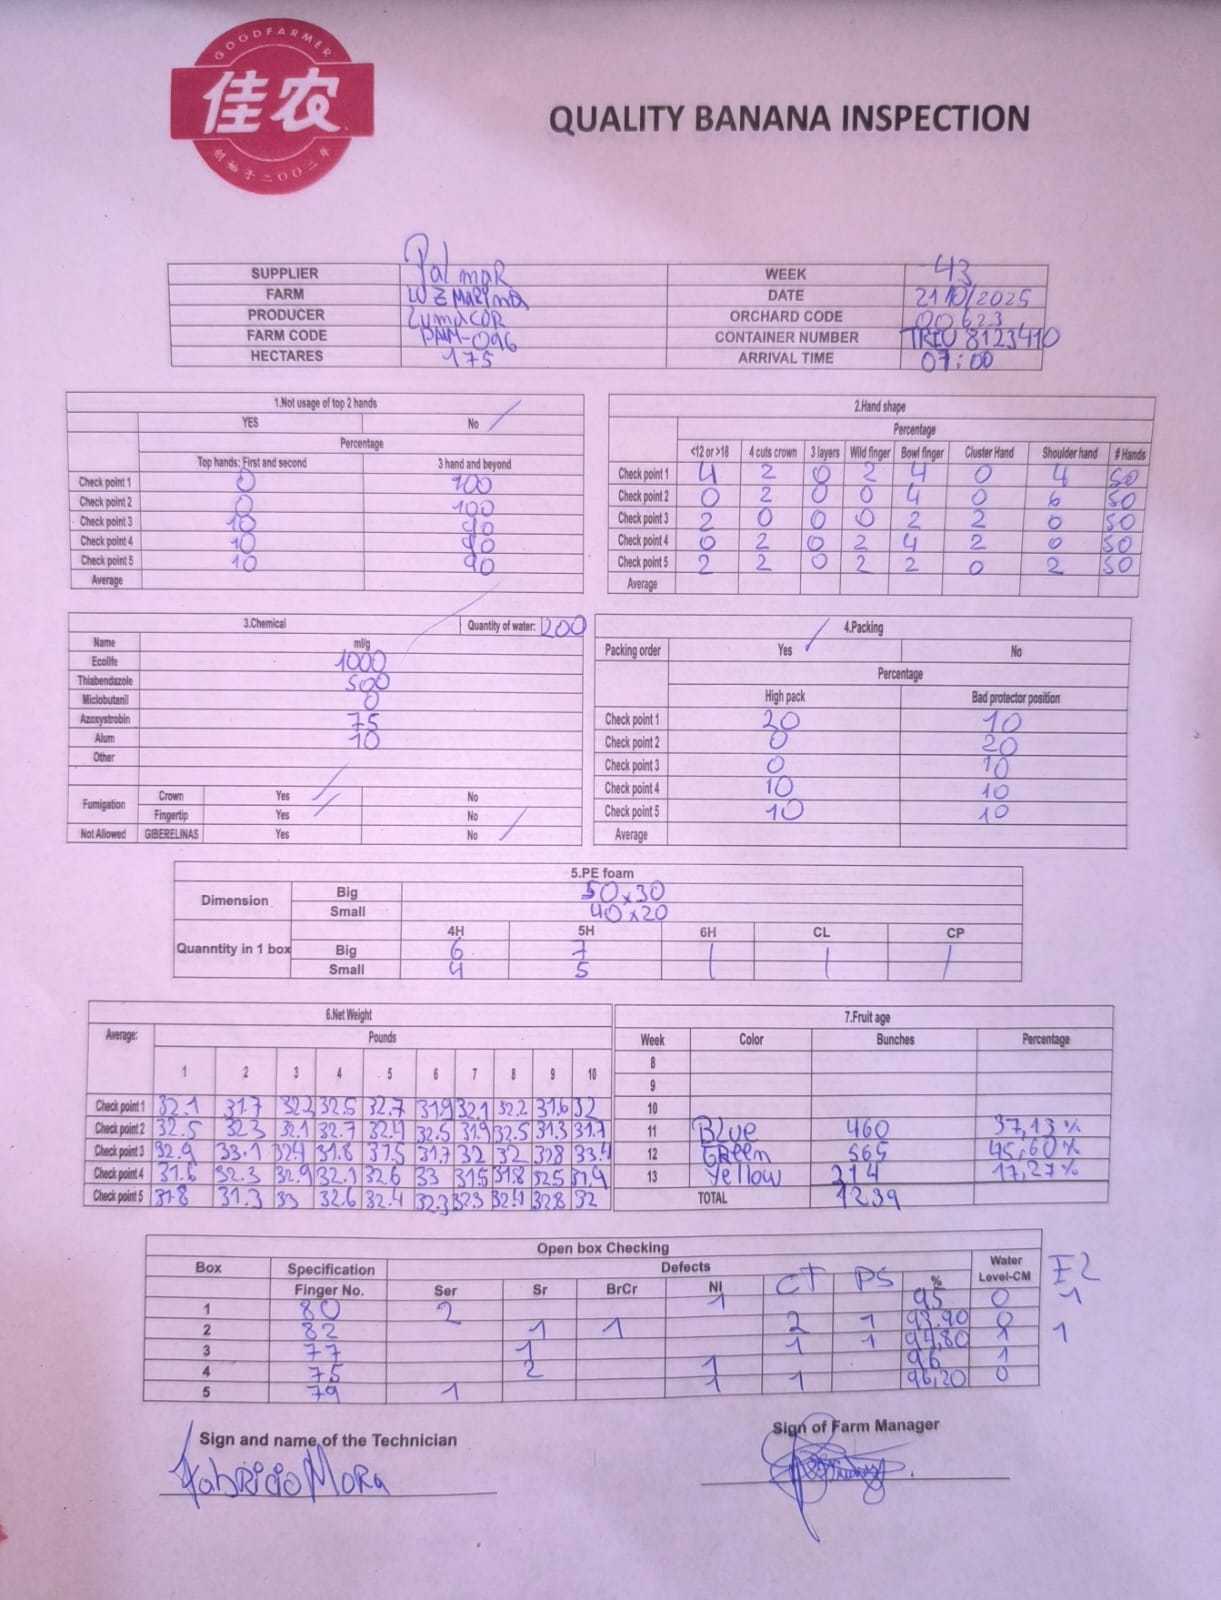 GOODFARMER
佳农
创始于二〇〇二年
QUALITY BANANA INSPECTION
SUPPLIER Palmar WEEK 43
FARM LUZ MARINA DATE 21/10/2025
PRODUCER Lumacor ORCHARD CODE 00623
FARM CODE PAM-096 CONTAINER NUMBER TRIU 8123410
HECTARES 175 ARRIVAL TIME 07:00
1.Not usage of top 2 hands
YES No /
Percentage
Top hands: First and second 3 hand and beyond
Check point 1 0 100
Check point 2 0 100
Check point 3 10 90
Check point 4 10 90
Check point 5 10 90
Average
2.Hand shape
Percentage
<12 or >18 4 cuts crown 3 layers Wild finger Bowl finger Cluster Hand Shoulder hand # Hands
Check point 1 4 2 0 2 4 0 4 50
Check point 2 0 2 0 0 4 0 6 50
Check point 3 2 0 0 0 2 2 0 50
Check point 4 0 2 0 2 4 2 0 50
Check point 5 2 2 0 2 2 0 2 50
Average
3.Chemical Quantity of water: 200
Name ml/g
Ecolife 1000
Thiabendazole 500
Miclobutanil 0
Azoxystrobin 75
Alum 10
Other
Fumigation Crown Yes / No
Fingertip Yes / No
Not Allowed GIBERELINAS Yes No /
4.Packing
Packing order Yes / No
Percentage
High pack Bad protector position
Check point 1 20 10
Check point 2 0 20
Check point 3 0 10
Check point 4 10 10
Check point 5 10 10
Average
5.PE foam
Dimension Big 50x30
Small 40x20
4H 5H 6H CL CP
Quanntity in 1 box Big 6 7 / / /
Small 4 5
6.Net Weight
Average: Pounds
1 2 3 4 5 6 7 8 9 10
Check point 1 32.1 31.7 32.2 32.5 32.7 31.9 32.1 32.2 31.6 32
Check point 2 32.5 32.3 32.1 32.7 32.4 32.5 31.9 32.5 31.3
Check point 3 32.9 33.1 32.4 31.8 31.7 32 32 32.8 33.4
Check point 4 31.6 32.3 32.9 32.1 32.6 33 31.5 31.8 32.5 31.9
Check point 5 31.8 31.3 33 32.6 32.4 32.3 32.3 32.4 32.8 32
7.Fruit age
Week Color Bunches Percentage
8
9
10
11 Blue 460 37,13 %
12 Green 565 45,60 %
13 Yellow 214 17,27 %
TOTAL 1239
Open box Checking
Box Specification Defects Water
Finger No. Ser Sr BrCr NI CT PS % Level-CM F2
1 80 2 1 95 0 1
2 82 1 1 2 1 93.90 0
3 77 1 1 1 94,80 1 1
4 75 2 1 96 1
5 79 1 1 1 96,20 0
Sign and name of the Technician
Fabricio Mora
Sign of Farm Manager